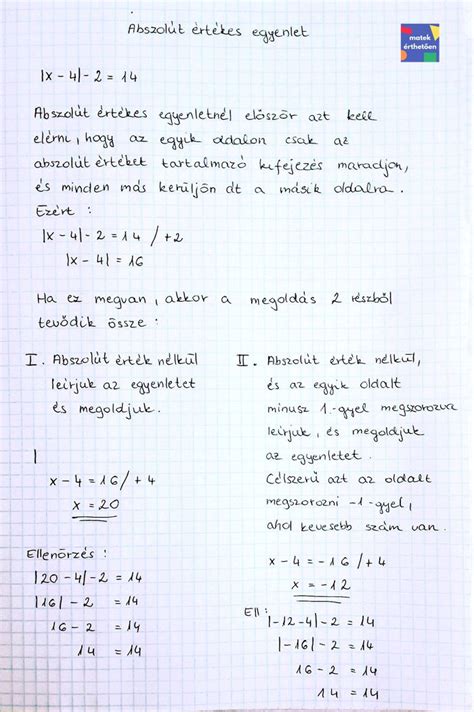 Abszolút értékes egyenlet
matek
érthetően
|x - 4| - 2 = 14
Abszolút értékes egyenletnél először azt kell
elérni, hogy az egyik oldalon csak az
abszolút értéket tartalmazó kifejezés maradjon,
és minden más kerüljön át a másik oldalra.
Ezért :
|x - 4| - 2 = 14 / +2
|x - 4| = 16
Ha ez megvan, akkor a megoldás 2 részből
tevődik össze :
I. Abszolút érték nélkül
leírjuk az egyenletet
és megoldjuk.
|
x - 4 = 16 / + 4
x = 20
Ellenőrzés :
|20 - 4| - 2 = 14
|16| - 2 = 14
16 - 2 = 14
14 = 14
II. Abszolút érték nélkül,
és az egyik oldalt
minusz 1-gyel megszorozva
leírjuk, és megoldjuk
az egyenletet.
Célszerű azt az oldalt
megszorozni -1-gyel,
ahol kevesebb szám van.
x - 4 = - 16 / + 4
x = - 12
Ell :
|-12 - 4| - 2 = 14
|-16| - 2 = 14
16 - 2 = 14
14 = 14